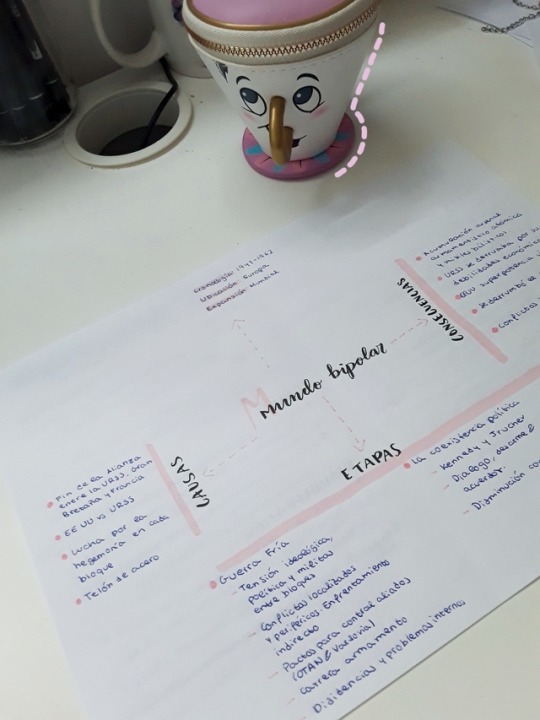 Cronología: 1947-1962
Ubicación: Europa
Expansión: Mundial
Mundo bipolar
CONSECUENCIAS
• Acumulación arsenal
armamentístico atómico
y misiles balísticos
• URSS se derrumba por su
debilidades económica
• EEUU superpotencia
• Se derrumbó el
• Conflictos
CAUSAS
• Fin de la Alianza
entre la URSS, Gran
Bretaña y Francia
• EE UU vs URSS
• Lucha por la
hegemonía en cada
bloque
• Telón de acero
ETAPAS
• Guerra Fría
- Tensión ideológica,
política y militar
entre bloques
- Conflictos localizados
y periféricos. Enfrentamiento
indirecto
- Pactos para control aliados
(OTAN & Varsovia)
- Carrera armamento
- Disidencias y problemas internos
• La coexistencia política
- Kennedy y Jruchev
- Dialogo, desarme &
acuerdos.
- Disminución